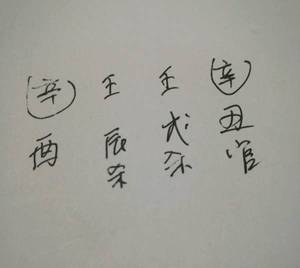 辛酉
壬辰杀
壬戌杀
辛丑官